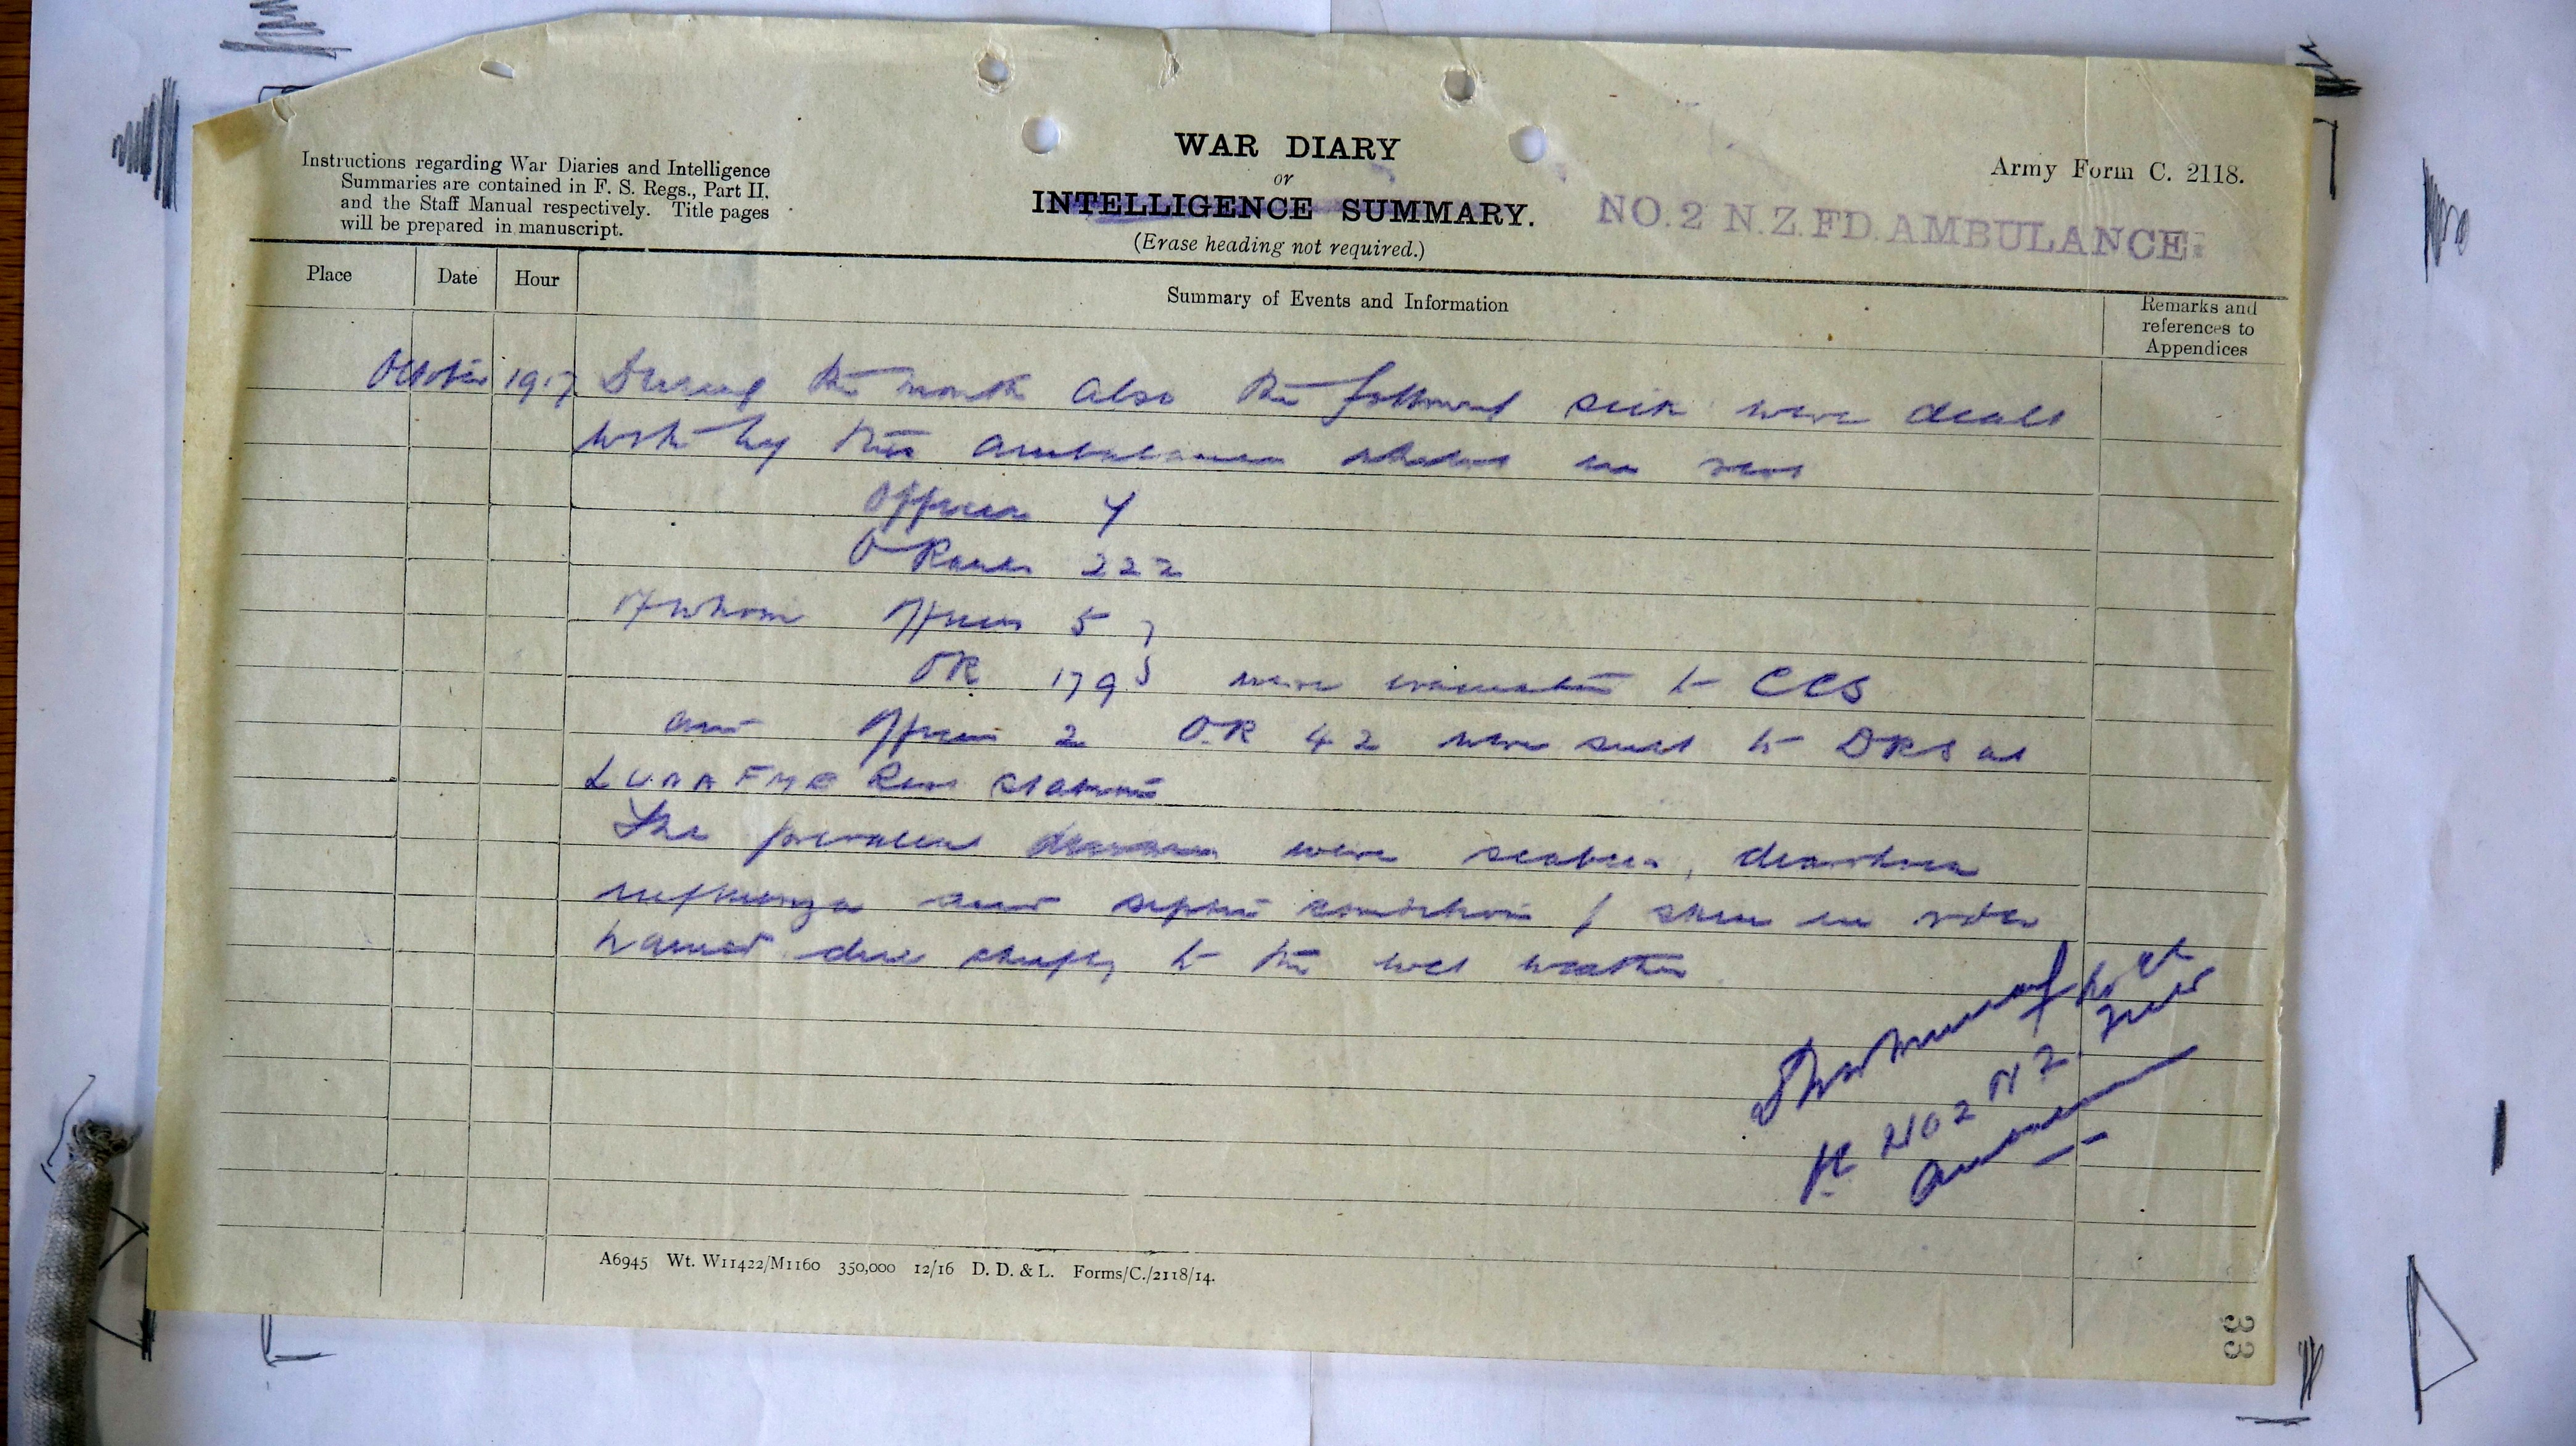 Instructions regarding War Diaries and Intelligence
Summaries are contained in F. S. Regs., Part II.
and the Staff Manual respectively. Title pages
will be prepared in manuscript.
WAR DIARY
or
INTELLIGENCE SUMMARY.
(Erase heading not required.)
Army Form C. 2118.
NO. 2 N.Z. FD. AMBULANCE.
Place Date Hour Summary of Events and Information Remarks and references to Appendices
October 1917 During the month also the following sick were dealt
with by this ambulance whilst in rest
Officers 7
O Ranks 222
of whom Officers 5 }
OR 179 } were evacuated to CCS
and Officers 2 OR 42 were sent to DRS at
Rest Station
The prevalent diseases were scabies, diarrhoea
influenza and septic conditions of skin in order
named due chiefly to the wet weather
Lt Col
NO 2 N Z Field
Ambulance
A6945 Wt. W11422/M1160 350,000 12/16 D. D. & L. Forms/C./2118/14.
33